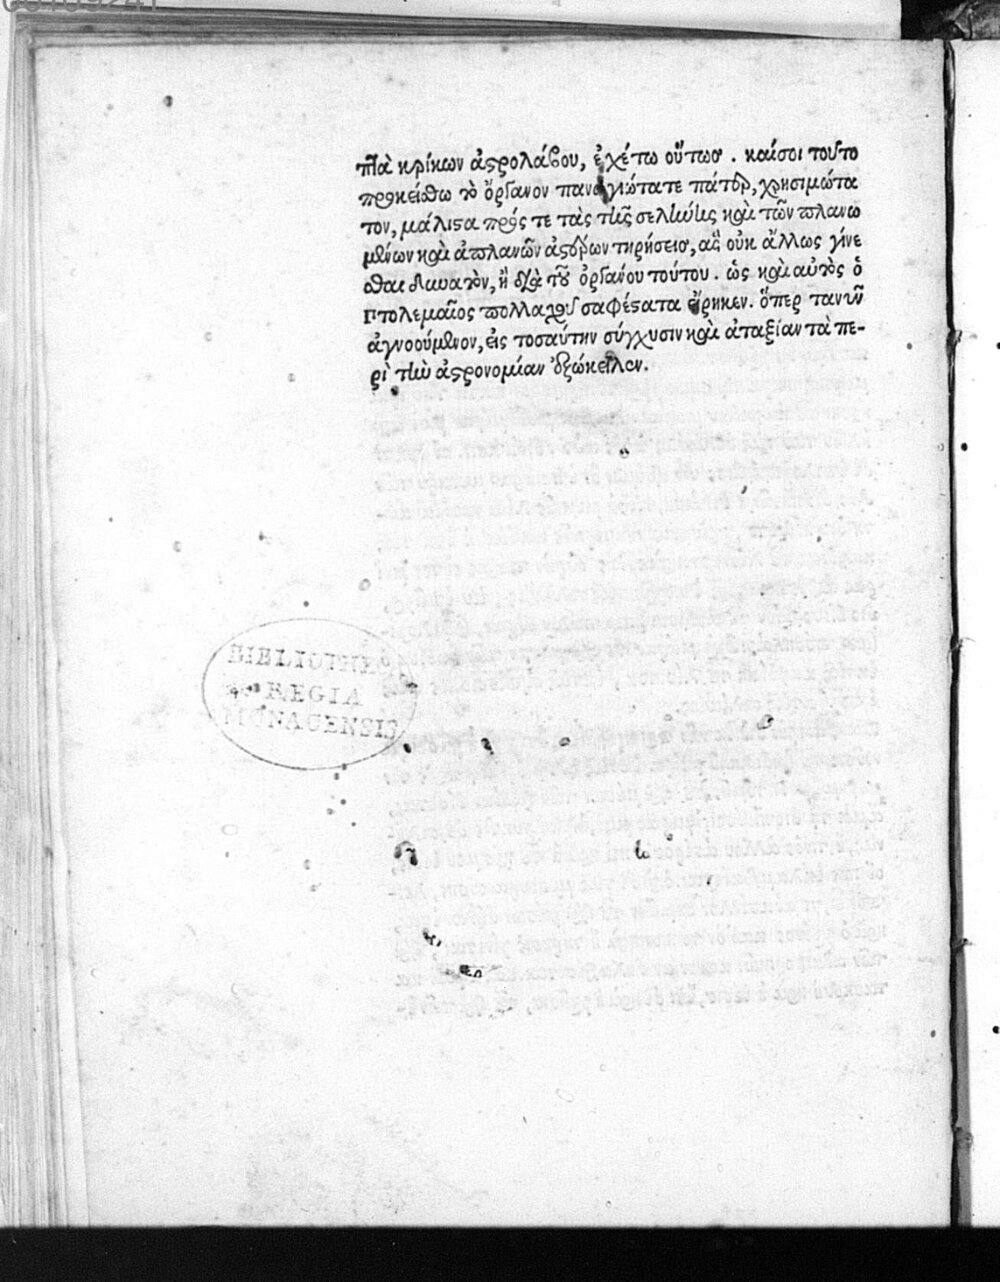 ἑπτὰ κρίκων ἀστρολάβου, ἐχέτω οὕτωσ. καί σοι τοῦτο
προκείσθω τὸ ὄργανον παναγιώτατε πάτερ, χρησιμώτα
τον, μάλιστα πρός τε τὰς τῆς σελήνης καὶ τῶν πλανω
μένων καὶ ἀπλανῶν ἀστέρων τηρήσεισ, ἃς οὐκ ἄλλως γίνε
σθαι δυνατὸν, ἢ διὰ τοῦ ὀργάνου τούτου. ὡς καὶ αὐτὸς ὁ
Πτολεμαῖος πολλαχοῦ σαφέστατα εἴρηκεν. ὅπερ τανῦν
ἀγνοούμενον, εἰς τοσαύτην σύγχυσιν καὶ ἀταξίαν τὰ πε-
ρὶ τὴν ἀστρονομίαν ἐξώκειλεν.
BIBLIOTHECA
REGIA
MONACENSIS